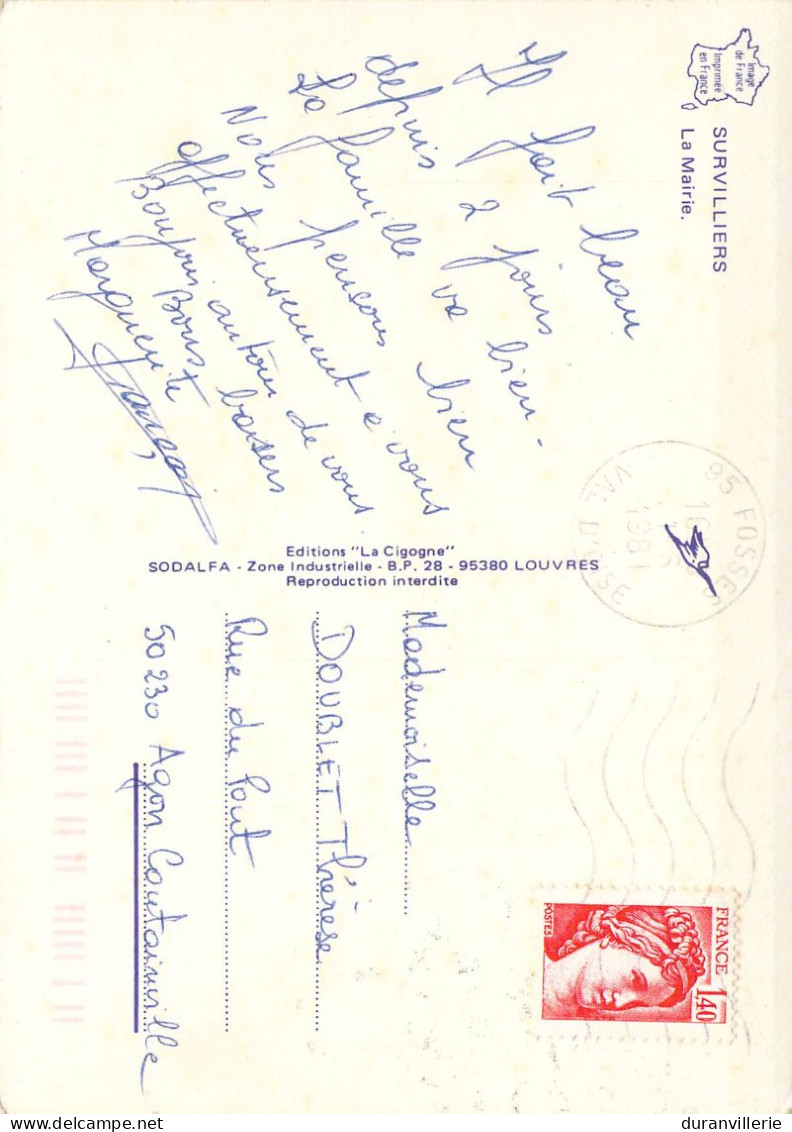 Image
de France
Imprimée
en France
SURVILLIERS
La Mairie.
Il fait beau
depuis 2 jours
La famille va bien.
Nous pensons bien
affectueusement à vous
Bonjour autour de vous
Bons baisers
Marguerite
François
Editions "La Cigogne"
SODALFA - Zone Industrielle - B.P. 28 - 95380 LOUVRES
Reproduction interdite
95 FOSSES
1981
VAL D'OISE
FRANCE
1,40
POSTES
Mademoiselle
DOUBLET Thérèse
Rue du Pont
50230 Agon Coutainville
duranvillerie